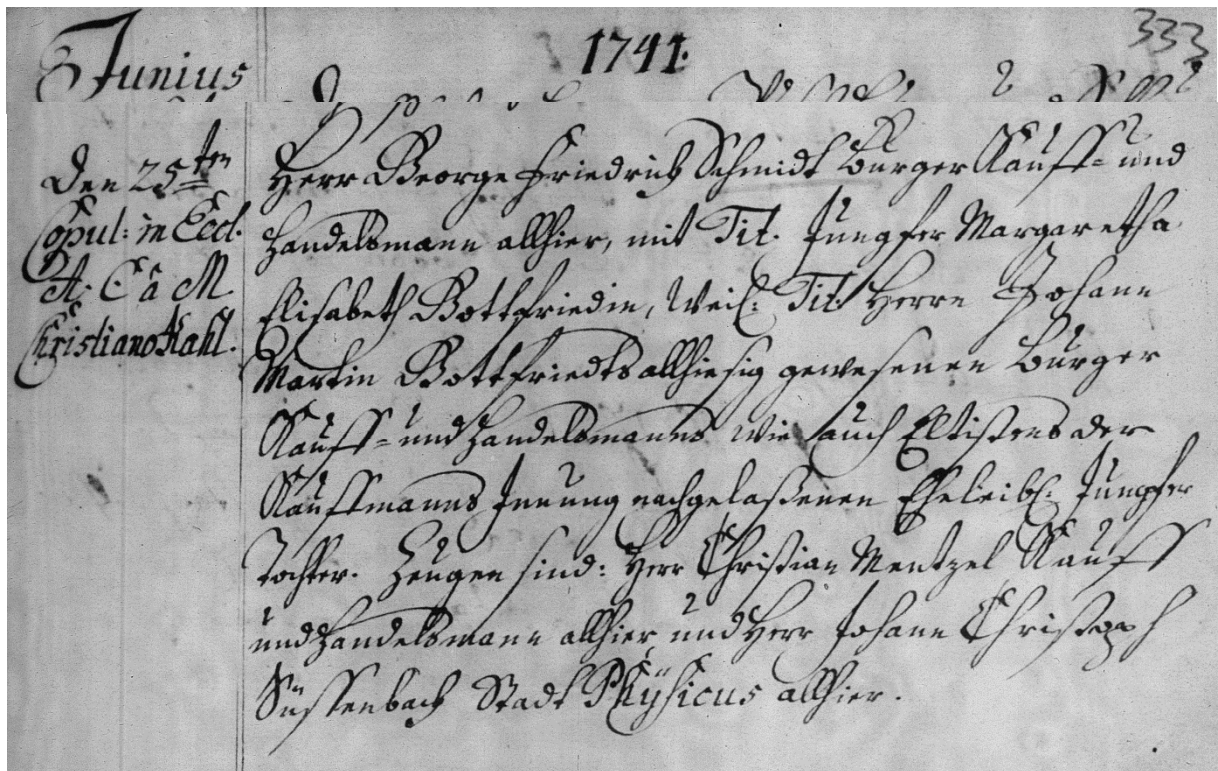 Junius
1741.
333
Den 25ten
Copul: in Eccl.
A. C. â M.
Christiano Kahl.
Herr George Friedrich Schmidt Burger Kauff- und
Handelsmann allhier, mit Tit. Jungfer Margaretha
Elisabeth Gottfriedin, Weil: Tit: Herrn Johann
Martin Gottfriedts allhiesig gewesenen Burger
Kauff- und Handelsmanns wie auch Eltistens der
Kauffmanns Innung nachgelaßenen Eheleibl: Jumpfer
Tochter. Zeugen sind: Herr Christian Mentzel Kauff
und Handelsmann allhier, und Herr Johann Christoph
Süssenbach Stadt Phÿsicus allhier.